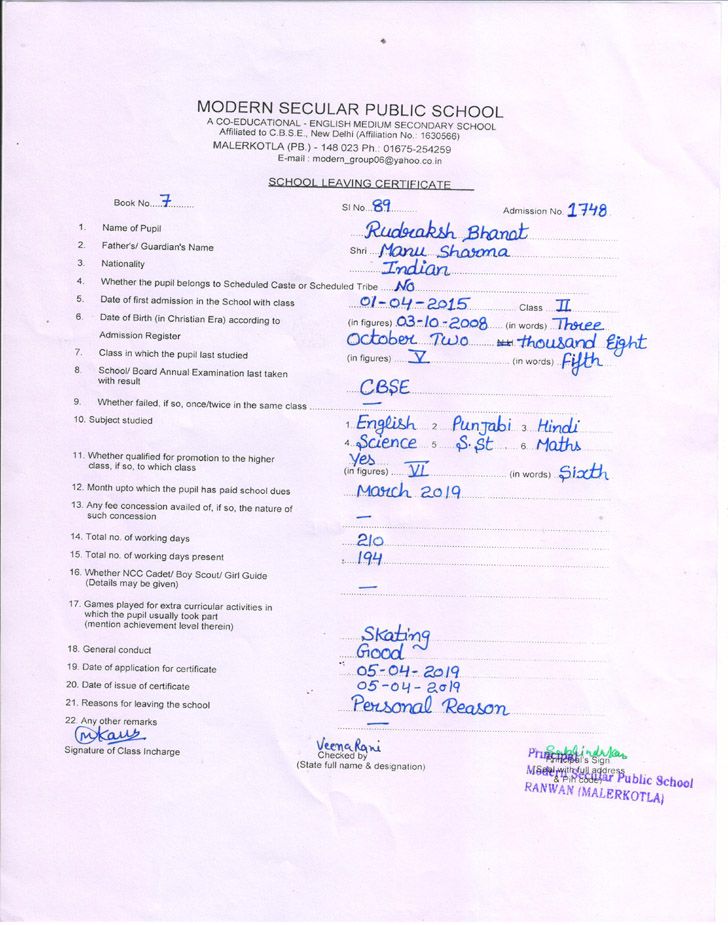 MODERN SECULAR PUBLIC SCHOOL
A CO-EDUCATIONAL - ENGLISH MEDIUM SECONDARY SCHOOL
Affiliated to C.B.S.E., New Delhi (Affiliation No.: 1630566)
MALERKOTLA (PB.) - 148 023 Ph.: 01675-254259
E-mail : modern_group06@yahoo.co.in
SCHOOL LEAVING CERTIFICATE
Book No. 7 Sl No. 89 Admission No. 1748
1. Name of Pupil Rudraksh Bhanot
2. Father's/ Guardian's Name Shri Manu Sharma
3. Nationality Indian
4. Whether the pupil belongs to Scheduled Caste or Scheduled Tribe No
5. Date of first admission in the School with class 01-04-2015 Class II
6. Date of Birth (in Christian Era) according to (in figures) 03-10-2008 (in words) Three
Admission Register October Two thousand Eight
7. Class in which the pupil last studied (in figures) V (in words) Fifth
8. School/ Board Annual Examination last taken
with result CBSE
9. Whether failed, if so, once/twice in the same class —
10. Subject studied 1. English 2 Punjabi 3. Hindi
4. Science 5 S.St 6. Maths
11. Whether qualified for promotion to the higher Yes
class, if so, to which class (in figures) VI (in words) Sixth
12. Month upto which the pupil has paid school dues March 2019
13. Any fee concession availed of, if so, the nature of
such concession —
14. Total no. of working days 210
15. Total no. of working days present 194
16. Whether NCC Cadet/ Boy Scout/ Girl Guide
(Details may be given) —
17. Games played for extra curricular activities in
which the pupil usually took part
(mention achievement level therein) Skating
18. General conduct Good
19. Date of application for certificate 05-04-2019
20. Date of issue of certificate 05-04-2019
21. Reasons for leaving the school Personal Reason
22. Any other remarks —
MKaur
Signature of Class Incharge
Veena Rani
Checked by
(State full name & designation)
Principal's Sign
Seal with full address
& Pin code)
Principal
Modern Secular Public School
RANWAN (MALERKOTLA)